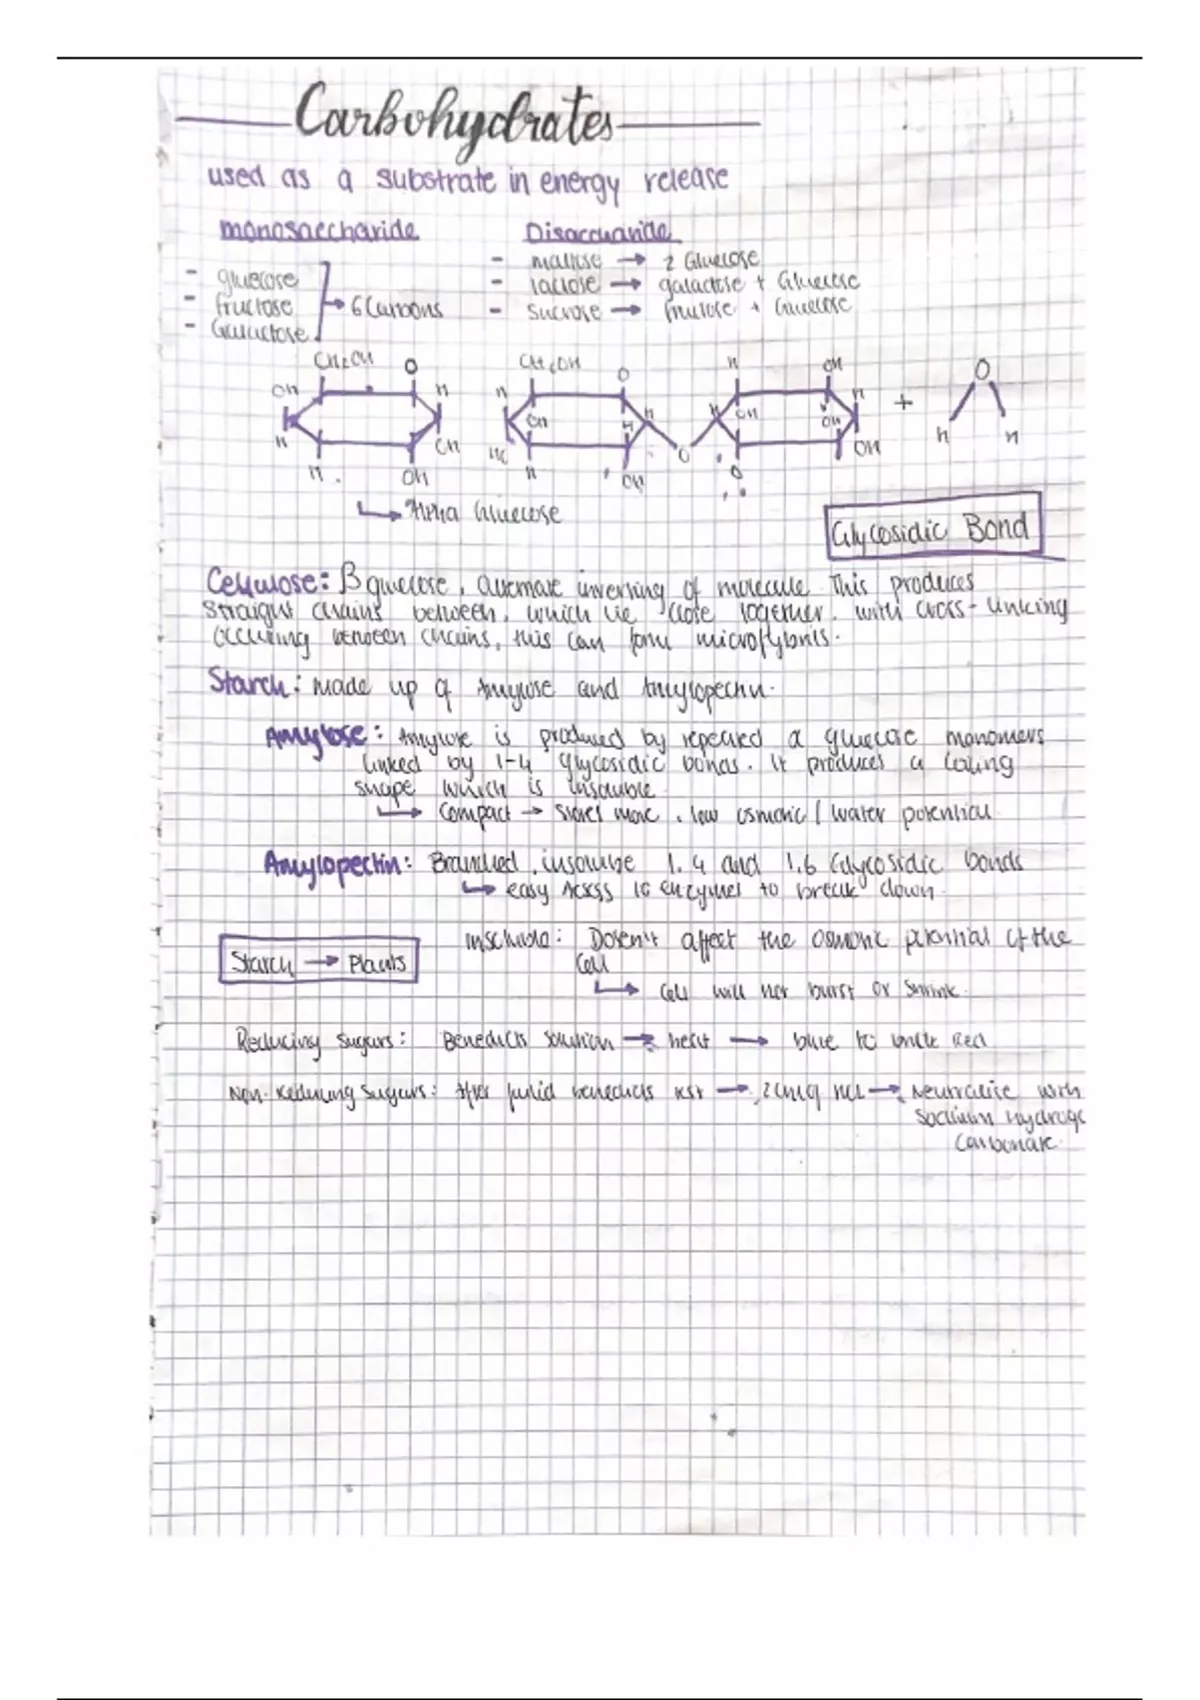 Carbohydrates
used as a substrate in energy release
monosaccharide
Disaccharide
- glucose
- fructose
- Galactose
→ 6 Carbons
- maltose → 2 Glucose
- lactose → galactose + Glucose
- Sucrose → fructose + Glucose
CH₂OH O
OH H
H OH
H OH
CH₂OH O H OH
H OH H H OH OH H
HO H OH O OH
+ O
H H
↳ Alpha Glucose
Glycosidic Bond
Cellulose: β glucose, alternate inversing of molecule. This produces
straight chains between, which lie close together, with cross-linking
occuring between chains, this can form microfybrils.
Starch: made up of Amylose and Amylopectin.
Amylose: Amylose is produced by repeated α glucose monomers
linked by 1-4 glycosidic bonds. It produces a coiling
shape which is insoluble
↳ Compact → stores more, low osmotic / water potential.
Amylopectin: Branched, insoluble 1.4 and 1.6 Glycosidic bonds
↳ easy Acsss to enzymes to break down.
insoluble: Dosen't affect the osmotic potential of the
Cell
↳ Cell will not burst or shrink.
Starch → Plants
Reducing Sugars: Benedicts solution → heat → blue to brick Red
Non-Reducing Sugars: After failed benedicts test → HCl → Neutralise with
Sodium Hydroge
Carbonate.